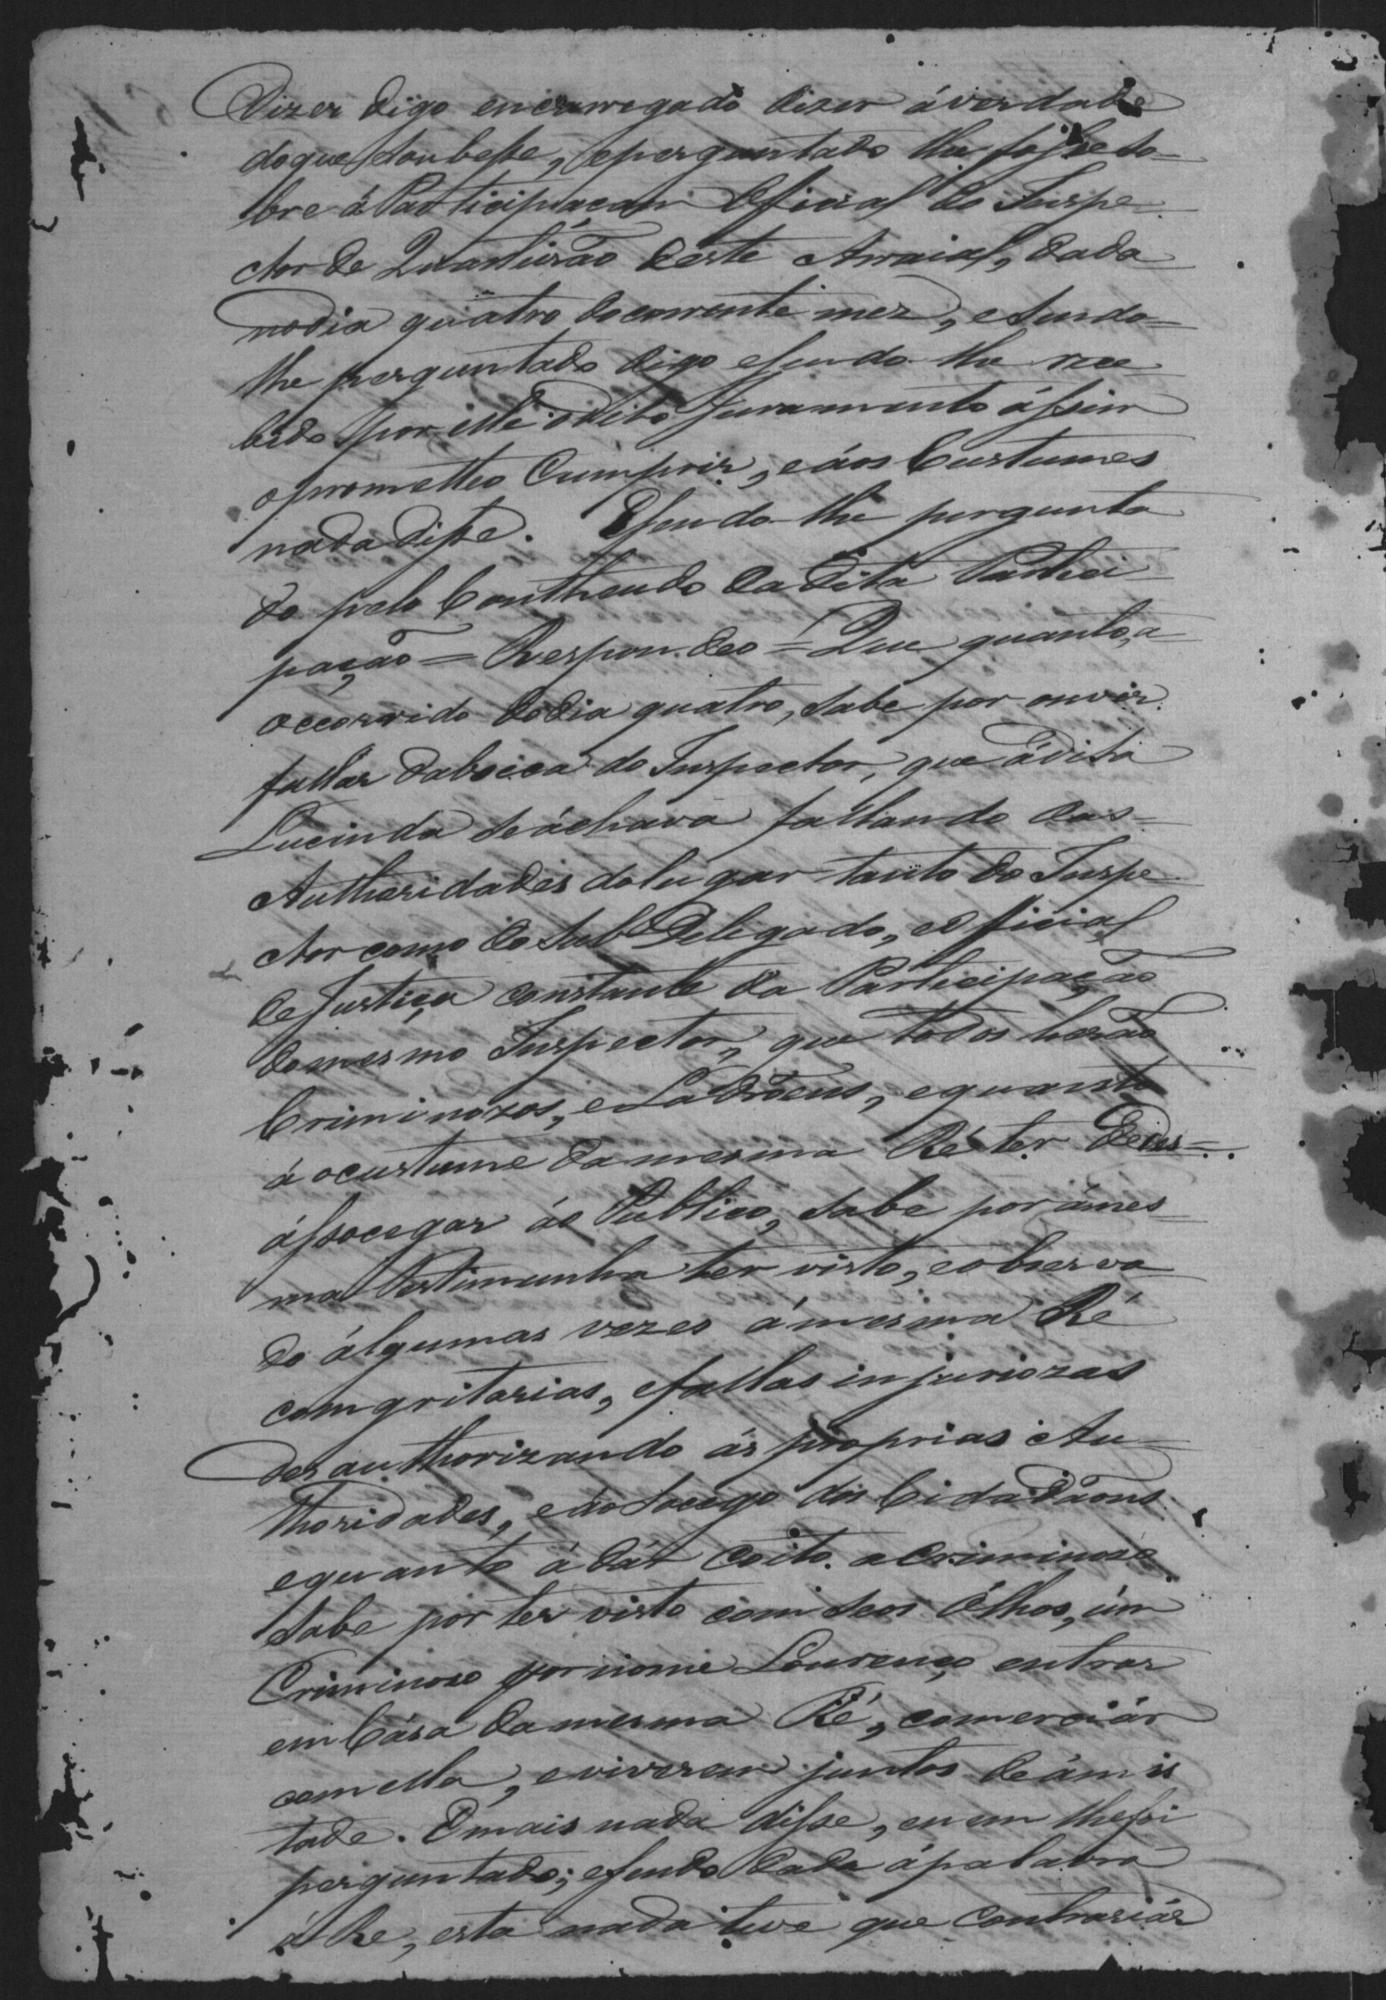 Dizer digo encarregado dizer á verdade
do que Soubesse, e perguntado lhe fosse So-
bre á Participacam Oficial do Inspe-
ctor de Quarteirão deste Arraial, dada
no dia quatro do corrente mez, e Sendo-
lhe perguntado digo e Sendo-lhe rece
bido por elle o dito Juramento ássim
o prometteo Cumprir, e áos Custumes
nada disse. E Sendo-lhe pergunta
do pelo Conthendo da dita Partici
pação = Respondeo = Que quanto, a
occorrido do dia quatro, Sabe por ouvir
fallar da boca do Inspector, que ádita
Lucinda Se áchava fallando das=
Authoridades do lugar tanto do Inspe-
ctor como do Sub Delegado, e Oficial
de Justiça constante da Participação
do mesmo Inspector, que todos herão
Criminozos, e Ladroens, e quanto
á o custume da mesma Ré ter dedes=
ássocegar áo Publico, Sabe por ámes-
ma testimunha ter visto, e observa
do álgumas vezes á mesma Ré
com gritarias, e fallas injuriozas
desauthorizando ás proprias Au-
thoridades, e áo Socego dos Cidadãons
e quanto á dár Coito a Criminozo
Sabe por ter visto com Seos Ólhos, úm
Criminozo por nome Lourenço entrar
em Cáza da mesma Ré, comerciár
com ella, e viverem juntos de ámis
tade. E mais nada disse, e nem lhe foi
perguntado; e Sendo dada á palavra
á Ré, esta nada teve que Contrariár